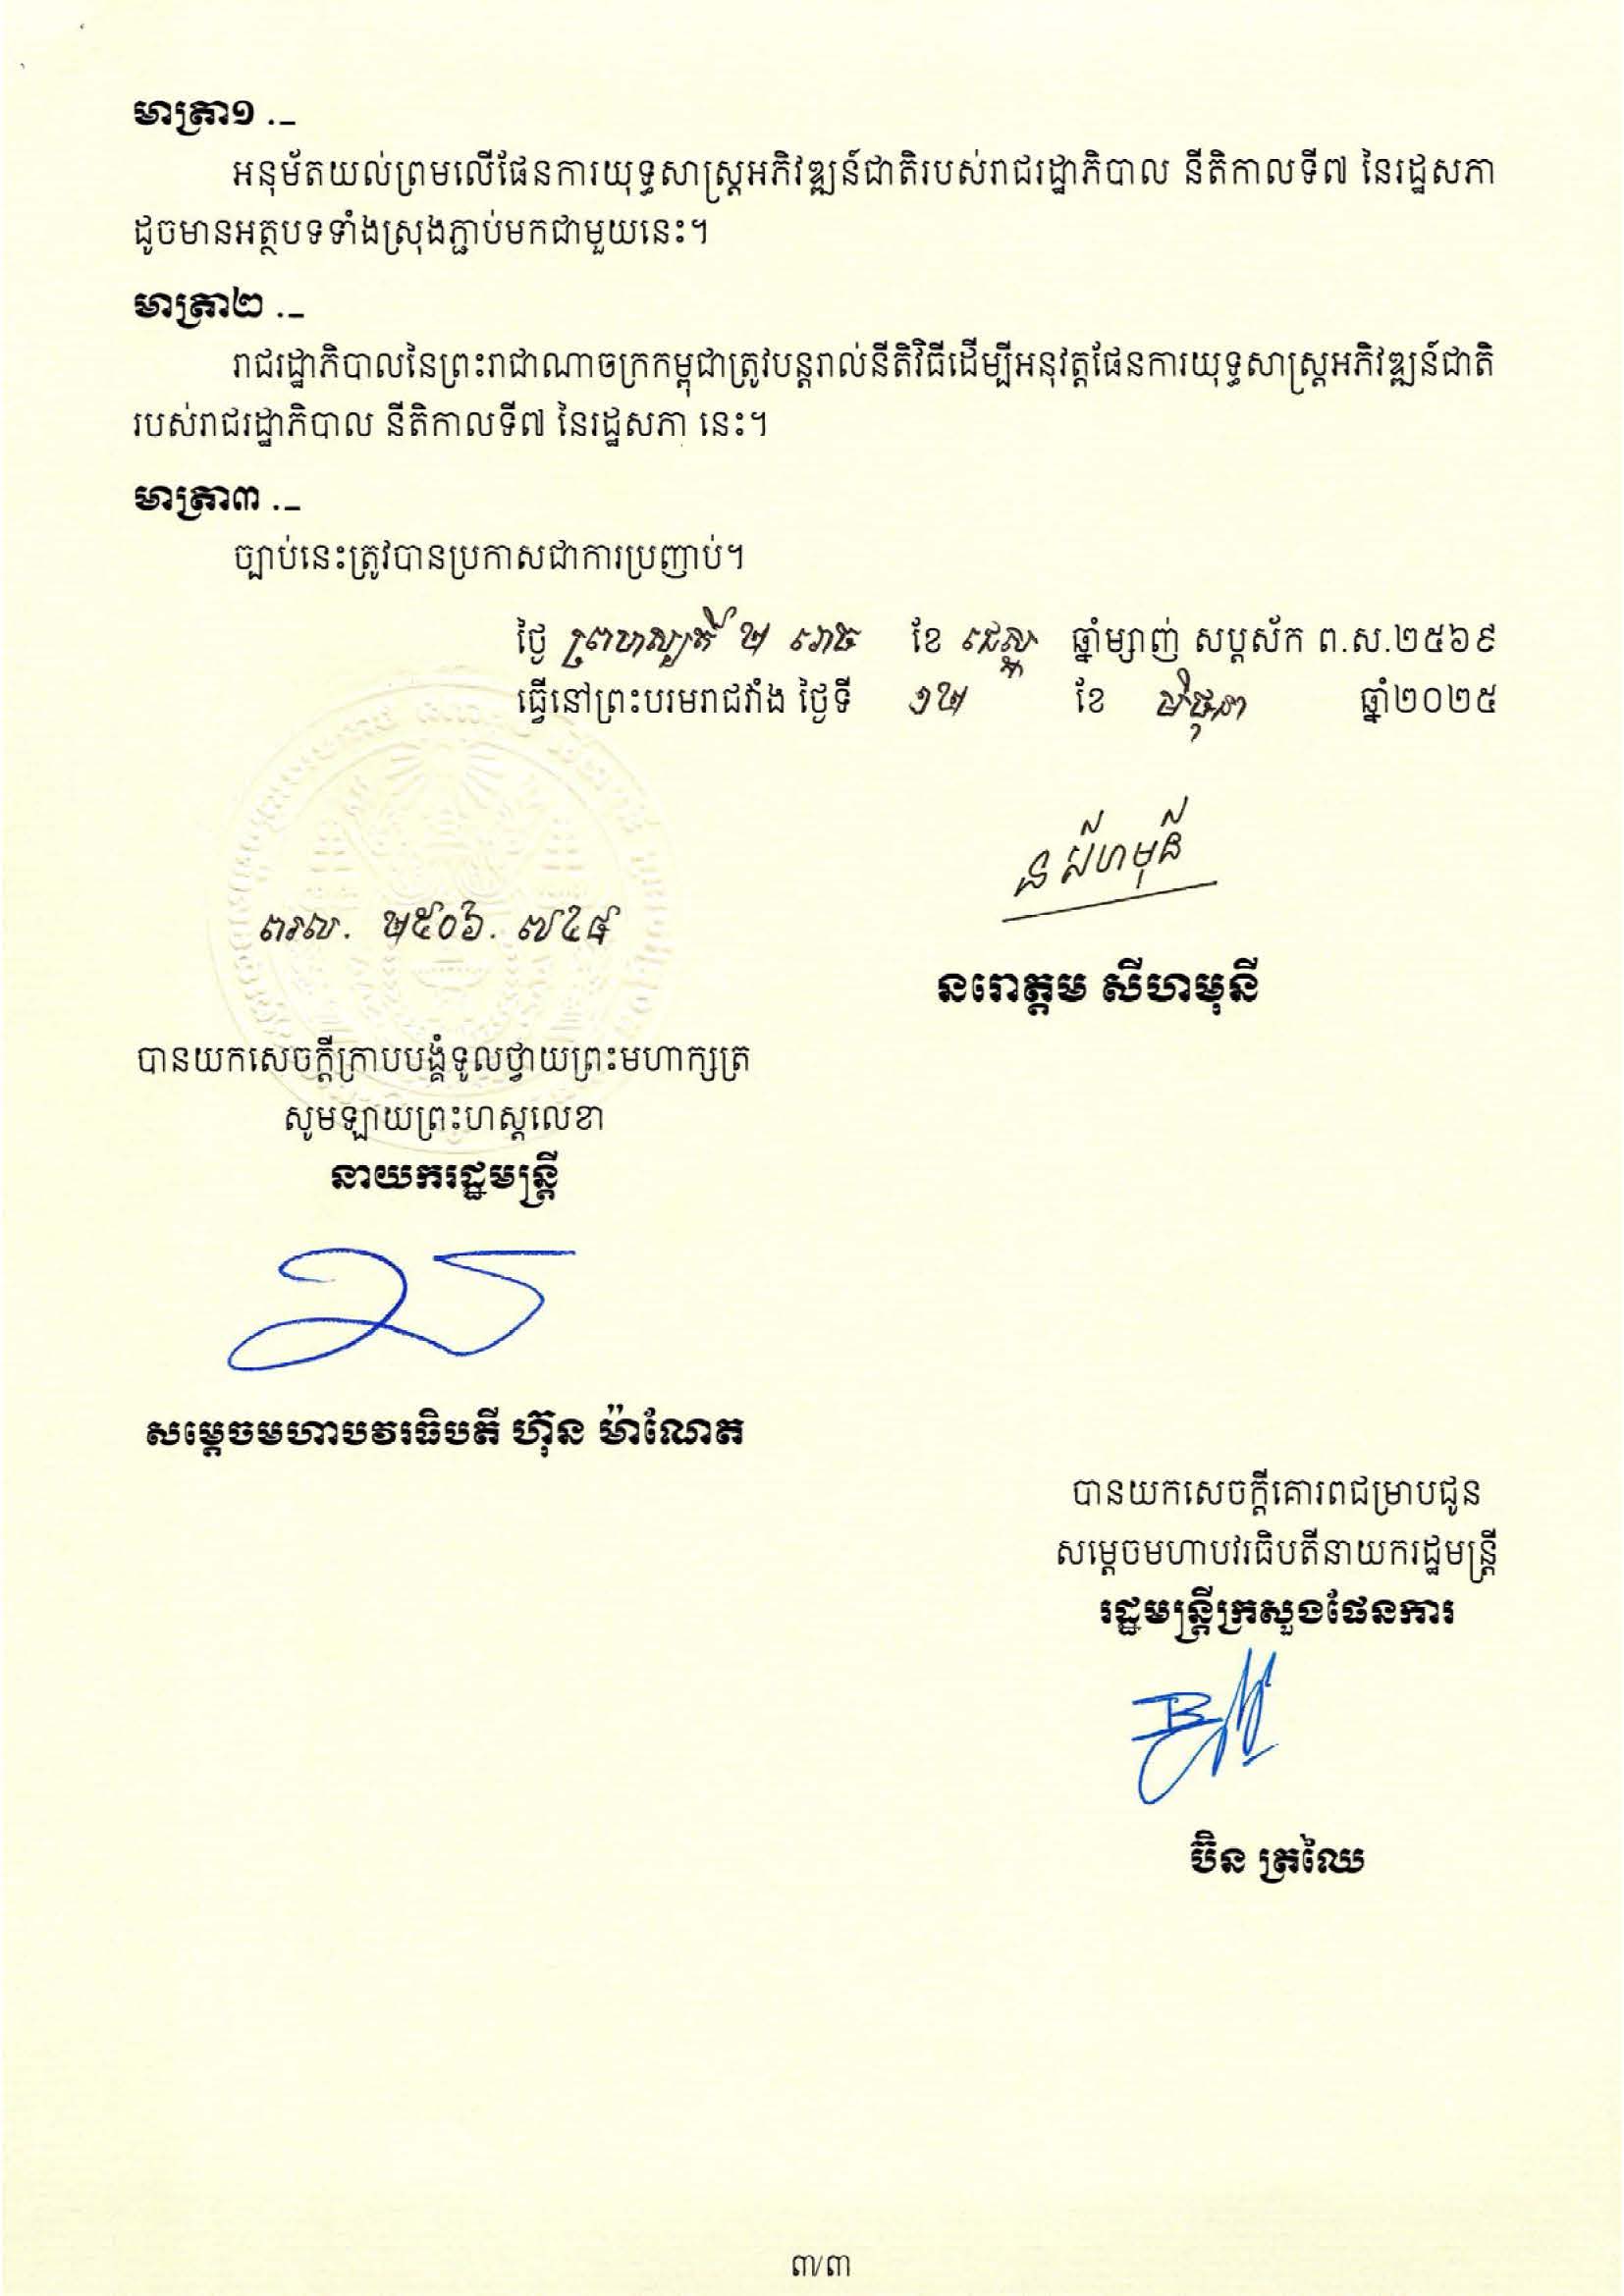 មាត្រា១ ._
អនុម័តយល់ព្រមលើផែនការយុទ្ធសាស្ត្រអភិវឌ្ឍន៍ជាតិរបស់រាជរដ្ឋាភិបាល នីតិកាលទី៧ នៃរដ្ឋសភា
ដូចមានអត្ថបទទាំងស្រុងភ្ជាប់មកជាមួយនេះ។
មាត្រា២ ._
រាជរដ្ឋាភិបាលនៃព្រះរាជាណាចក្រកម្ពុជាត្រូវបន្តរាល់នីតិវិធីដើម្បីអនុវត្តផែនការយុទ្ធសាស្ត្រអភិវឌ្ឍន៍ជាតិ
របស់រាជរដ្ឋាភិបាល នីតិកាលទី៧ នៃរដ្ឋសភា នេះ។
មាត្រា៣ ._
ច្បាប់នេះត្រូវបានប្រកាសជាការប្រញាប់។
ថ្ងៃ ព្រហស្បតិ៍ ២ រោច ខែ ជេស្ឋ ឆ្នាំម្សាញ់ សប្តស័ក ព.ស.២៥៦៩
ធ្វើនៅព្រះបរមរាជវាំង ថ្ងៃទី ១២ ខែ មិថុនា ឆ្នាំ២០២៥
ន សីហមុនី
ពរល. ២៥០៦. ៧៤៨
នរោត្តម សីហមុនី
បានយកសេចក្តីក្រាបបង្គំទូលថ្វាយព្រះមហាក្សត្រ
សូមឡាយព្រះហស្តលេខា
នាយករដ្ឋមន្ត្រី
សម្តេចមហាបវរធិបតី ហ៊ុន ម៉ាណែត
បានយកសេចក្តីគោរពជម្រាបជូន
សម្តេចមហាបវរធិបតីនាយករដ្ឋមន្ត្រី
រដ្ឋមន្ត្រីក្រសួងផែនការ
ប៊ិន ត្រឈៃ
៣/៣